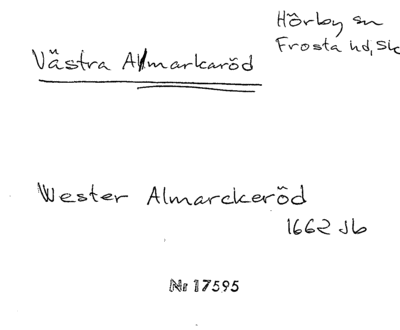 Hörby sn
Frosta hd, Sk
Västra Almarkaröd
Wester Almarckeröd
1662 Jb
Nr 17595